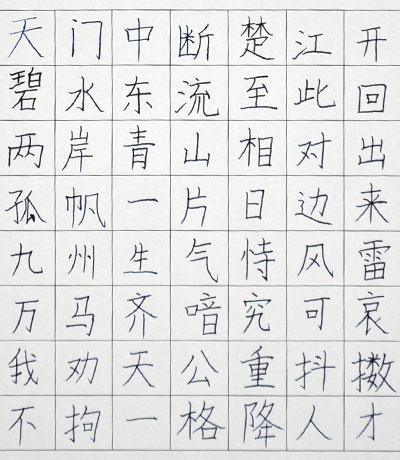 天门中断楚江开
碧水东流至此回
两岸青山相对出
孤帆一片日边来
九州生气恃风雷
万马齐喑究可哀
我劝天公重抖擞
不拘一格降人才